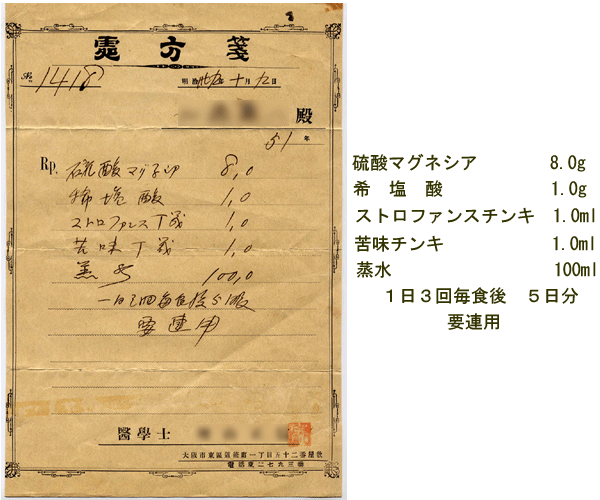 處方箋
No. 1418
明治卅九年十月九日
殿
51年
Rp. 硫酸マグネシア 8,0
稀塩酸 1,0
ストロファンス丁幾 1,0
苦味丁幾 1,0
蒸水 100,0
一日三回毎食後
要連用
醫學士
大阪市東區
電話東二七九三番
硫酸マグネシア 8.0g
希 塩 酸 1.0g
ストロファンスチンキ 1.0ml
苦味チンキ 1.0ml
蒸水 100ml
1日3回毎食後 5日分
要連用